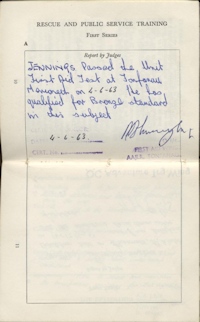 RESCUE AND PUBLIC SERVICE TRAINING
FIRST SERIES
A
Report by Judges
JENNINGS Passed the Unit
First Aid Test at
on 4-6-63 He has
qualified for Bronze standard
in this subject
4-6-63